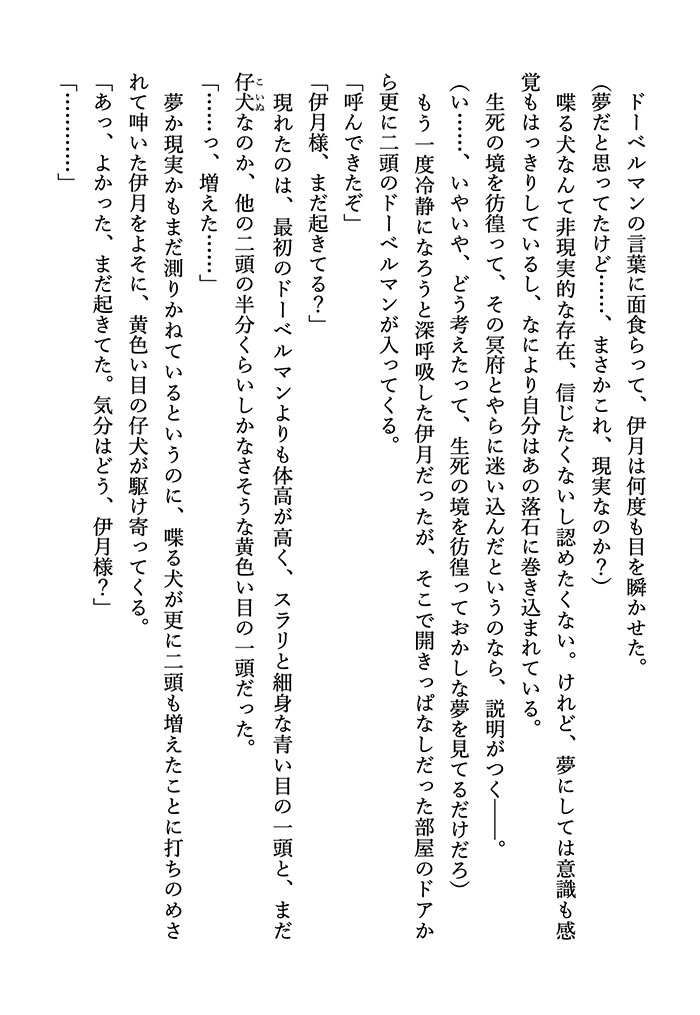 ドーベルマンの言葉に面食らって、伊月は何度も目を瞬かせた。
(夢だと思ってたけど……、まさかこれ、現実なのか？)
喋る犬なんて非現実的な存在、信じたくないし認めたくない。けれど、夢にしては意識も感
覚もはっきりしているし、なにより自分はあの落石に巻き込まれている。
生死の境を彷徨って、その冥府とやらに迷い込んだというのなら、説明がつく――。
(い……、いやいや、どう考えたって、生死の境を彷徨っておかしな夢を見てるだけだろ)
もう一度冷静になろうと深呼吸した伊月だったが、そこで開きっぱなしだった部屋のドアか
ら更に二頭のドーベルマンが入ってくる。
「呼んできたぞ」
「伊月様、まだ起きてる？」
現れたのは、最初のドーベルマンよりも体高が高く、スラリと細身な青い目の一頭と、まだ
仔犬なのか、他の二頭の半分くらいしかなさそうな黄色い目の一頭だった。
こいぬ
「……っ、増えた……」
夢か現実かもまだ測りかねているというのに、喋る犬が更に二頭も増えたことに打ちのめさ
れて呻いた伊月をよそに、黄色い目の仔犬が駆け寄ってくる。
「あっ、よかった、まだ起きてた。気分はどう、伊月様？」
「…………」